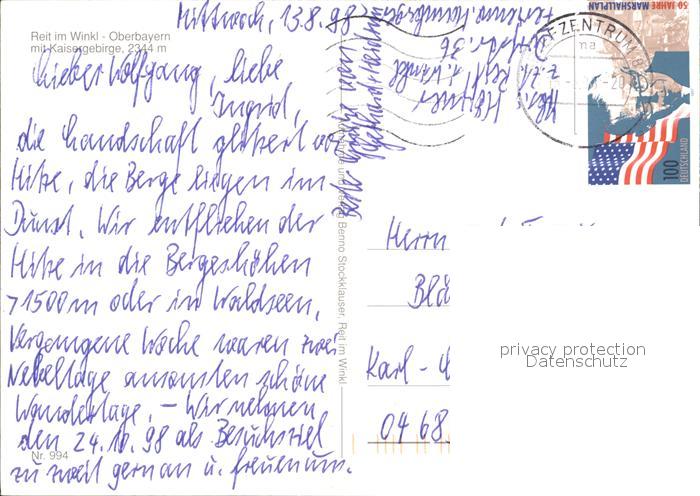 Reit im Winkl - Oberbayern
mit Kaisergebirge, 2344 m
Mittwoch, 13.8.98
Lieber Wolfgang, liebe
Ingrid,
die Landschaft glitzert vor
Hitze, die Berge liegen im
Dunst. Wir entfliehen der
Hitze in die Bergeshöhen
>1500m oder in Waldseen.
Vergangene Woche waren zwei
Nebeltage ansonsten schöne
Wandertage. – Wir nehmen
den 24.10.98 als Besuchsziel
zu zweit gern an u. freuen uns.
Nr. 994
Herzliche Grüße von
Verlag Benno Stockklauser, Reit im Winkl
Abs. Höppner
z.Zt. Reit i. Winkl
36
BRIEFZENTRUM 8
50 JAHRE MARSHALLPLAN
100
DEUTSCHLAND
Herrn
Blä
Karl -
04 68
privacy protection
Datenschutz